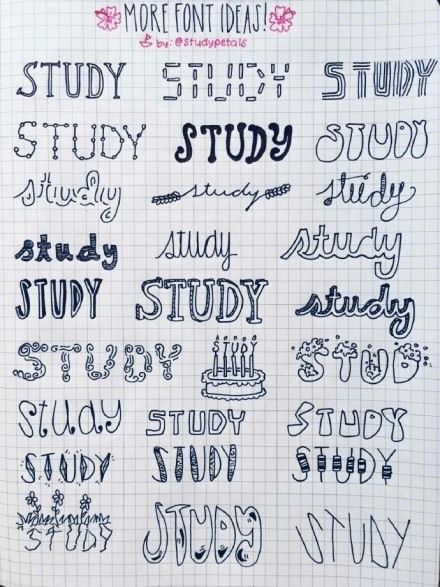 MORE FONT IDEAS!
by: @studypetals
STUDY STUDY STUDY
STUDY STUDY STUDY
study study study
study study study
STUDY STUDY study
STUDY STUDY STUD
study STUDY STUDY
STUDY STUDY STUDY
STUDY STUDY STUDY